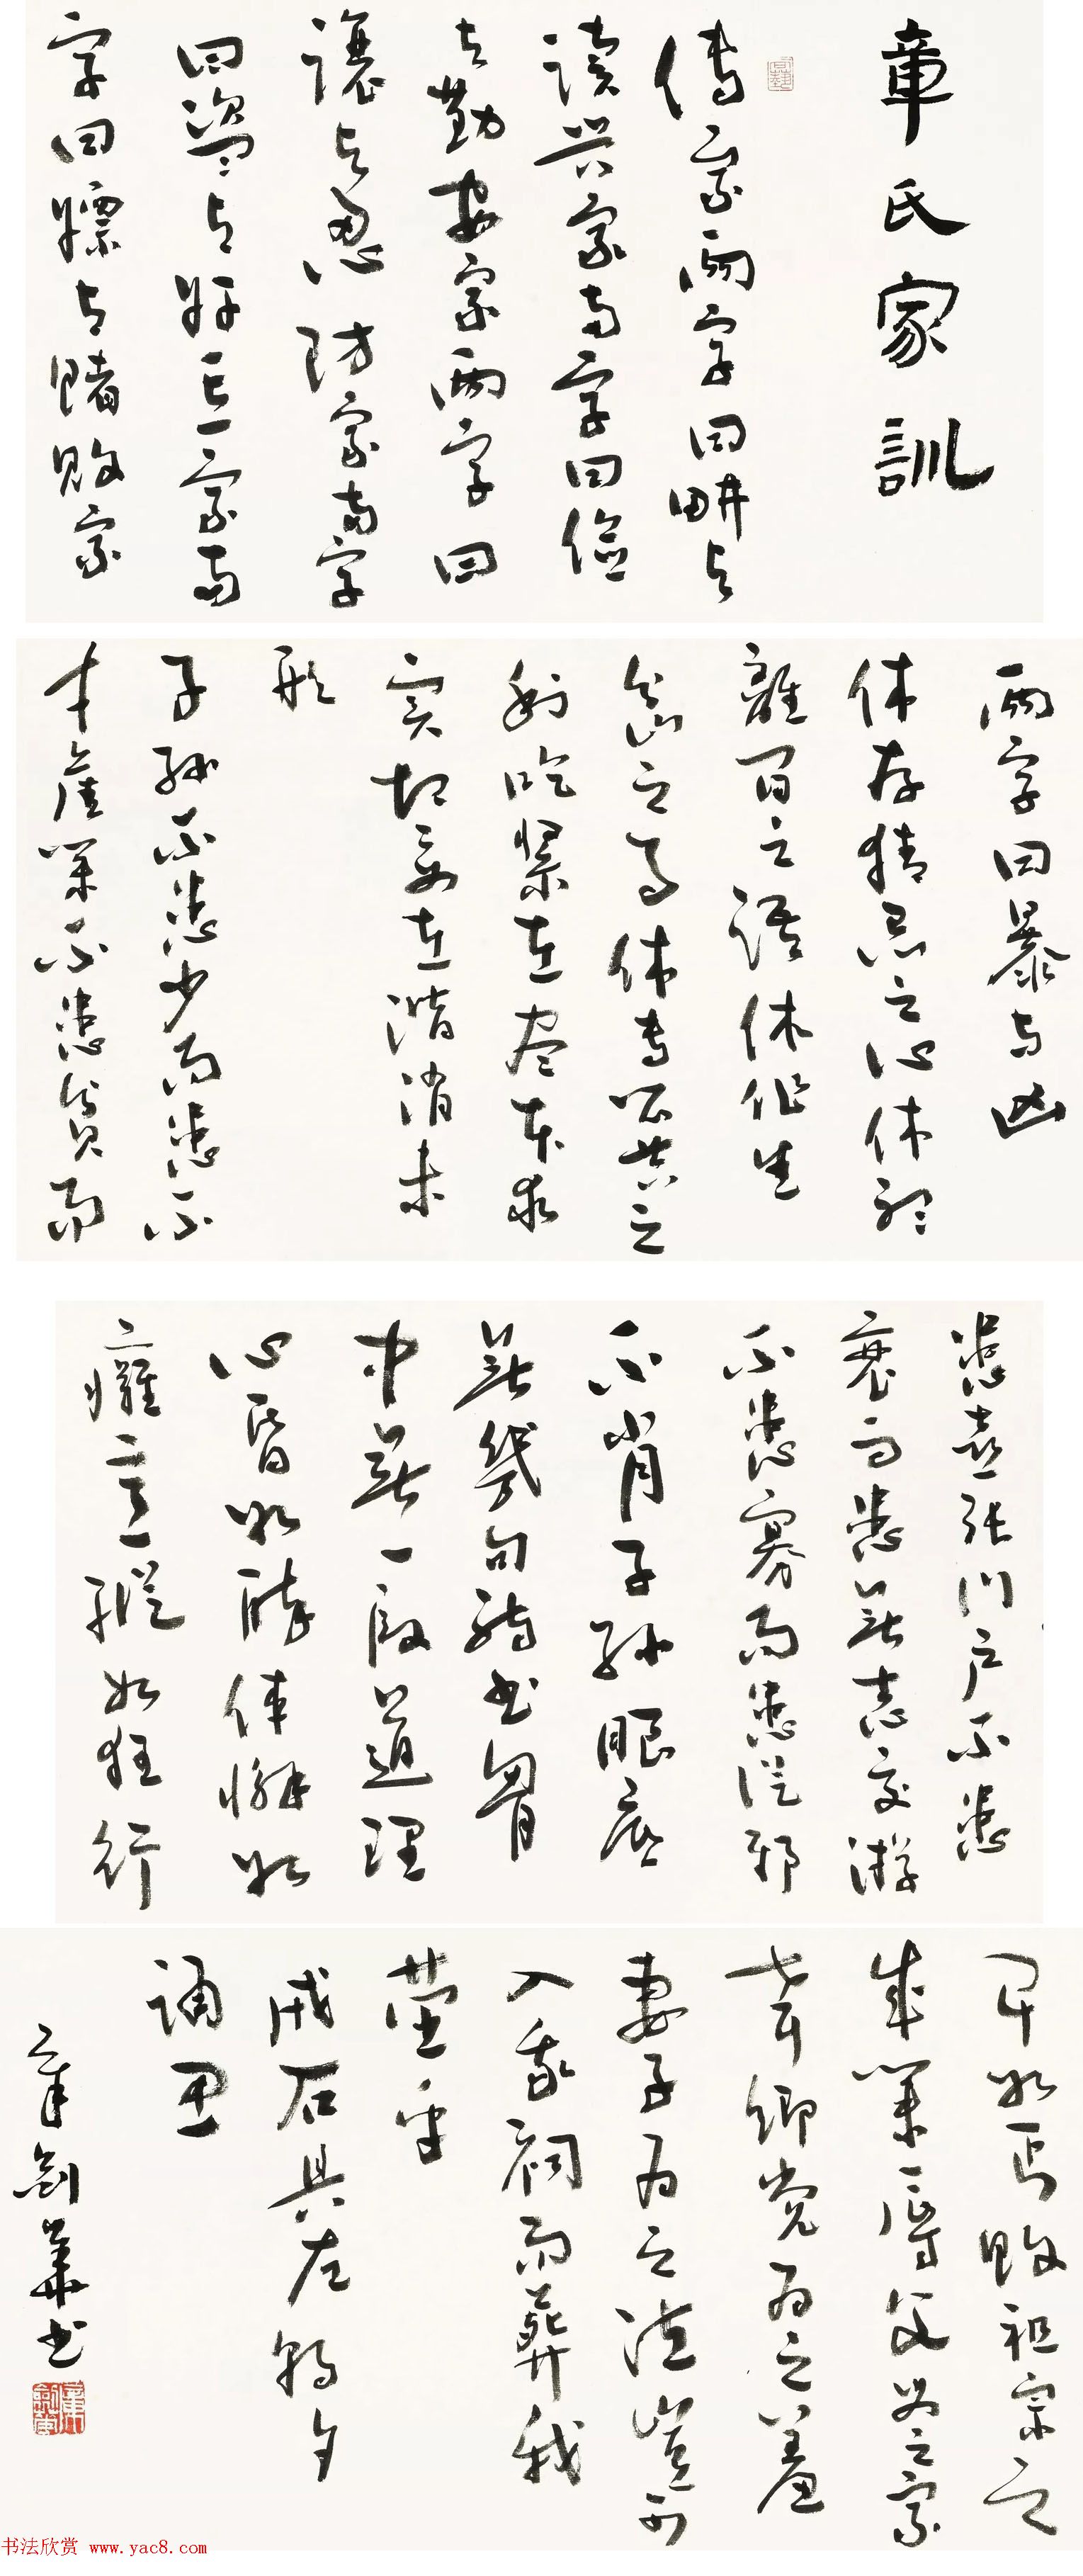 章氏家訓
傳家兩字曰畊與
讀興家兩字曰儉
與勤安家兩字曰
讓與忍防家兩字
曰盜與奸亡家兩
字曰嫖與賭敗家
兩字曰暴與凶
休存猜忌之心休聽
離間之語休作生
岔之事休專公共之
利吃緊在尽本求
實切要在潛消未
形
子孫不患少而患不
才產業不患貧而
患喜張門户不患
衰而患無志交游
不患寡而患從邪
不肖子孫眼底
無幾句詩書胸
中無一段道理
心昏如醉体懈如
癱意縱如狂行
卑如丐敗祖宗之
成業辱父母之家
聲鄉党為之羞
妻子為之泣豈可
入我祠而葬我
塋乎
戒石具左朝夕
誦思
章劍華書
书法欣赏 www.yac8.com